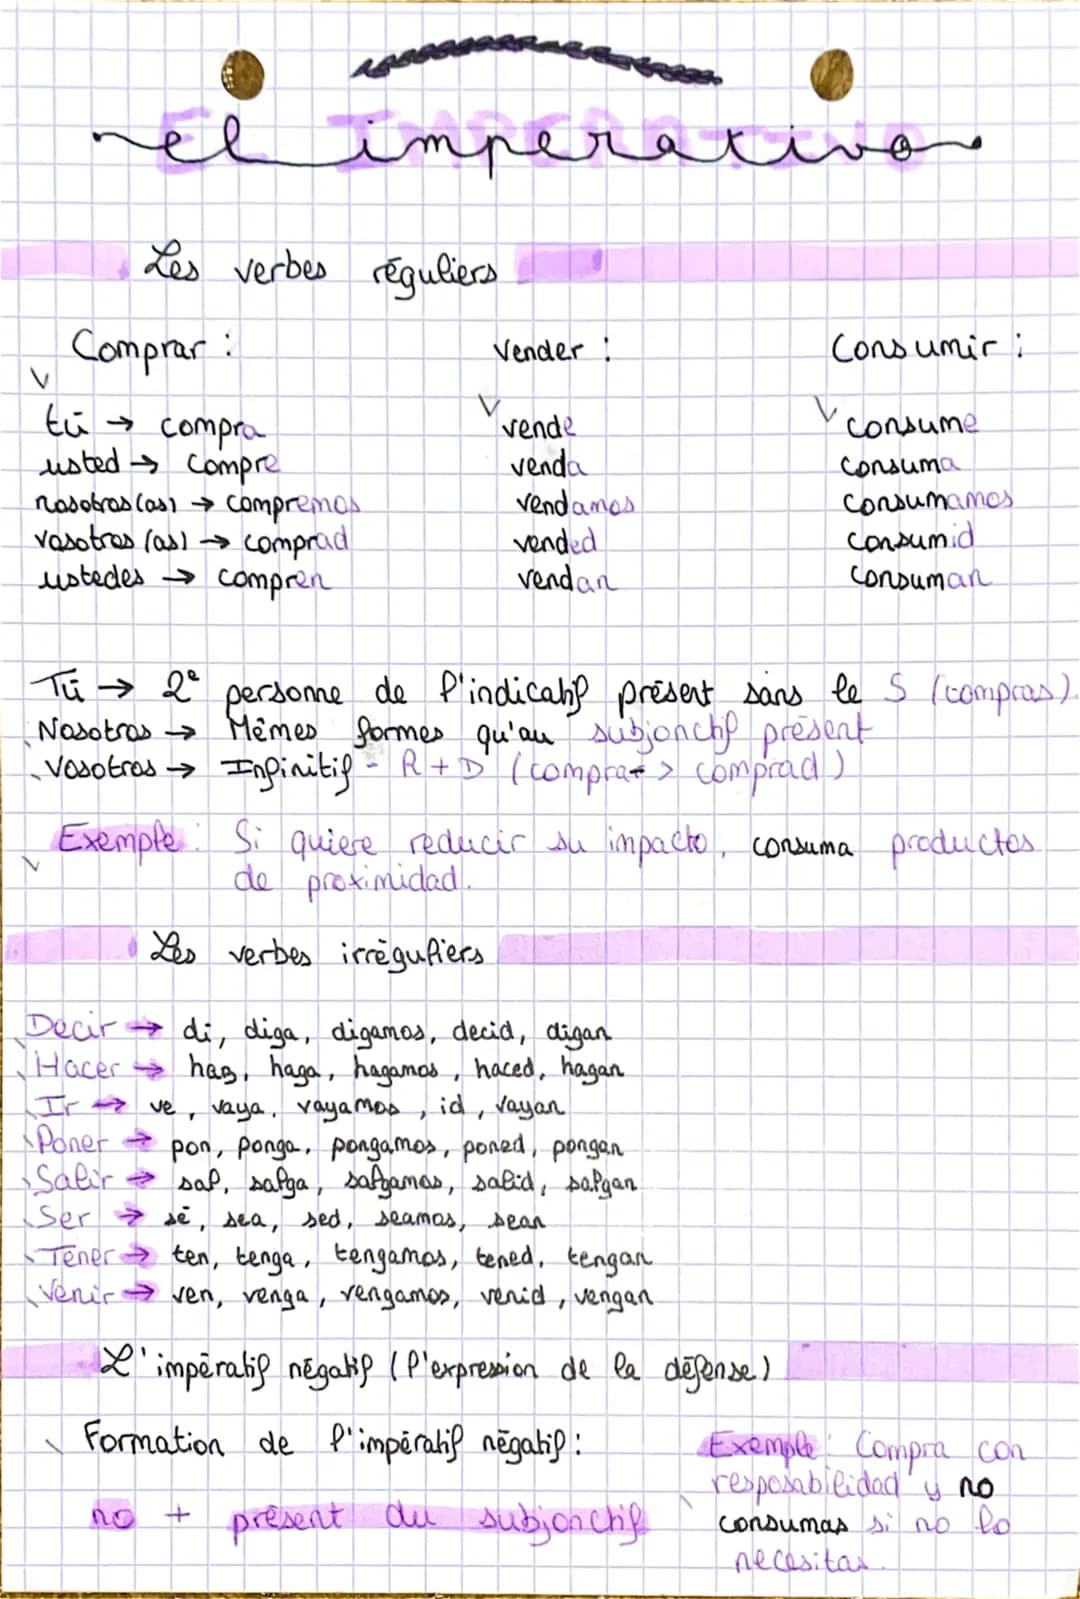 el imperativo
Les verbes réguliers
Comprar : vender : Consumir :
tú → compra vende consume
usted → compre venda consuma
nosotros (as) → compremos vendamos consumamos
vosotros (as) → comprad vended consumid
ustedes → compren vendan consuman
Tú → 2e personne de l'indicatif présent sans le S (compras).
Nosotros → Mêmes formes qu'au subjonctif présent
Vosotros → Infinitif - R + D (comprar > comprad)
Exemple : Si quiere reducir su impacto, consuma productos
de proximidad.
Les verbes irréguliers
Decir → di, diga, digamos, decid, digan
Hacer → haz, haga, hagamos, haced, hagan
Ir → ve, vaya, vayamos, id, vayan
Poner → pon, ponga, pongamos, poned, pongan
Salir → sal, salga, salgamos, salid, salgan
Ser → sé, sea, sed, seamos, sean
Tener → ten, tenga, tengamos, tened, tengan
Venir → ven, venga, vengamos, venid, vengan
L'impératif négatif (l'expression de la défense)
Formation de l'impératif négatif :
no + présent du subjonctif
Exemple : Compra con
resposabilidad y no
consumas si no lo
necesitas.